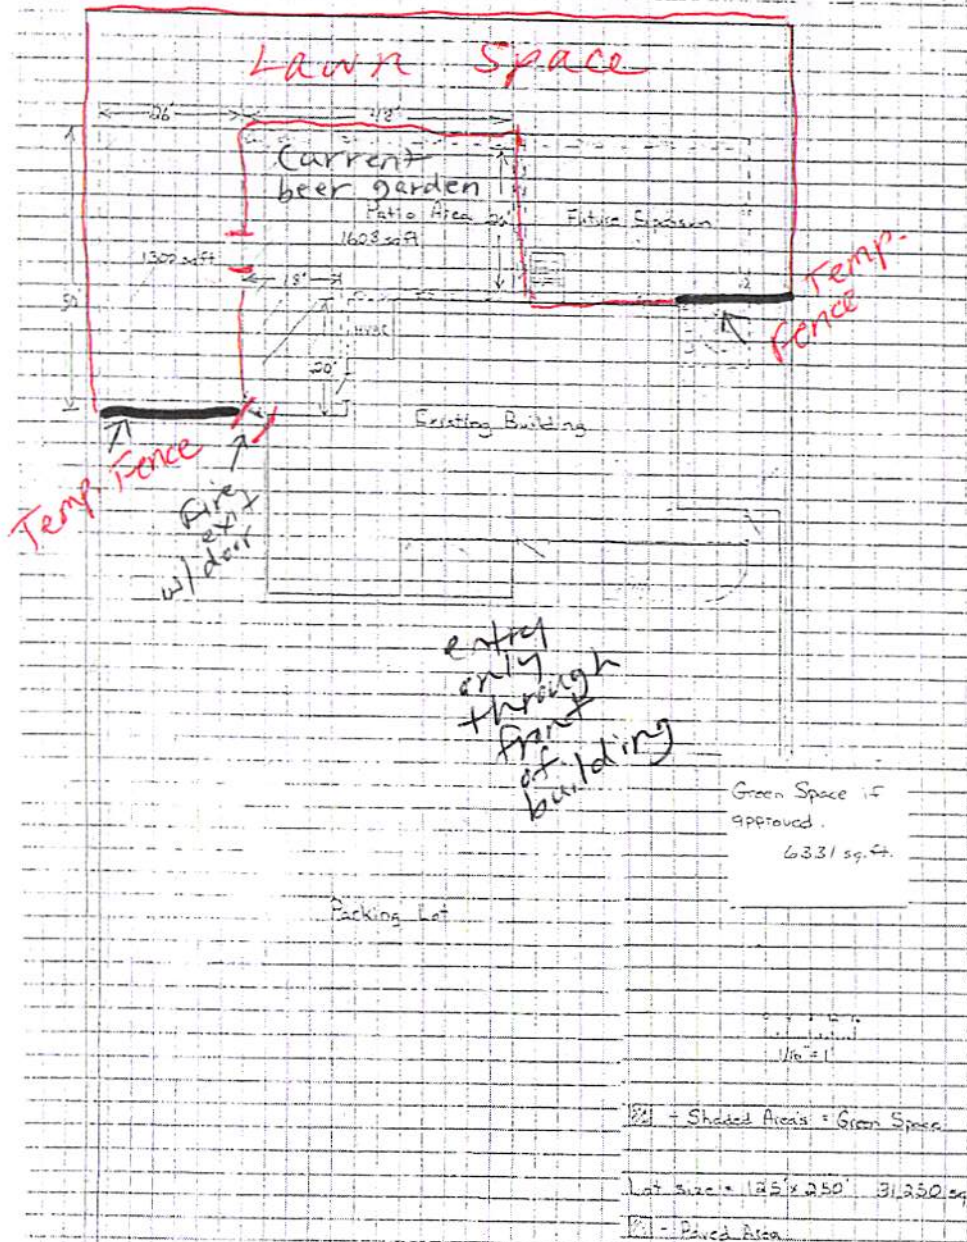 Lawn Space
26'
48'
Current
beer garden
Patio Area
1608 sqft
Future Expansion
1300 sqft
18'
50'
HVAC
20'
Temp.
Fence
Existing Building
Temp. Fence
Fire
exit
w/ door
entry
only
through
front
of
building
Green Space if
approved.
6331 sq.ft.
Parking Lot
1/16" = 1'
- Shaded Areas = Green Space
Lot size = 125' x 250' 31,250 sq
- Paved Area